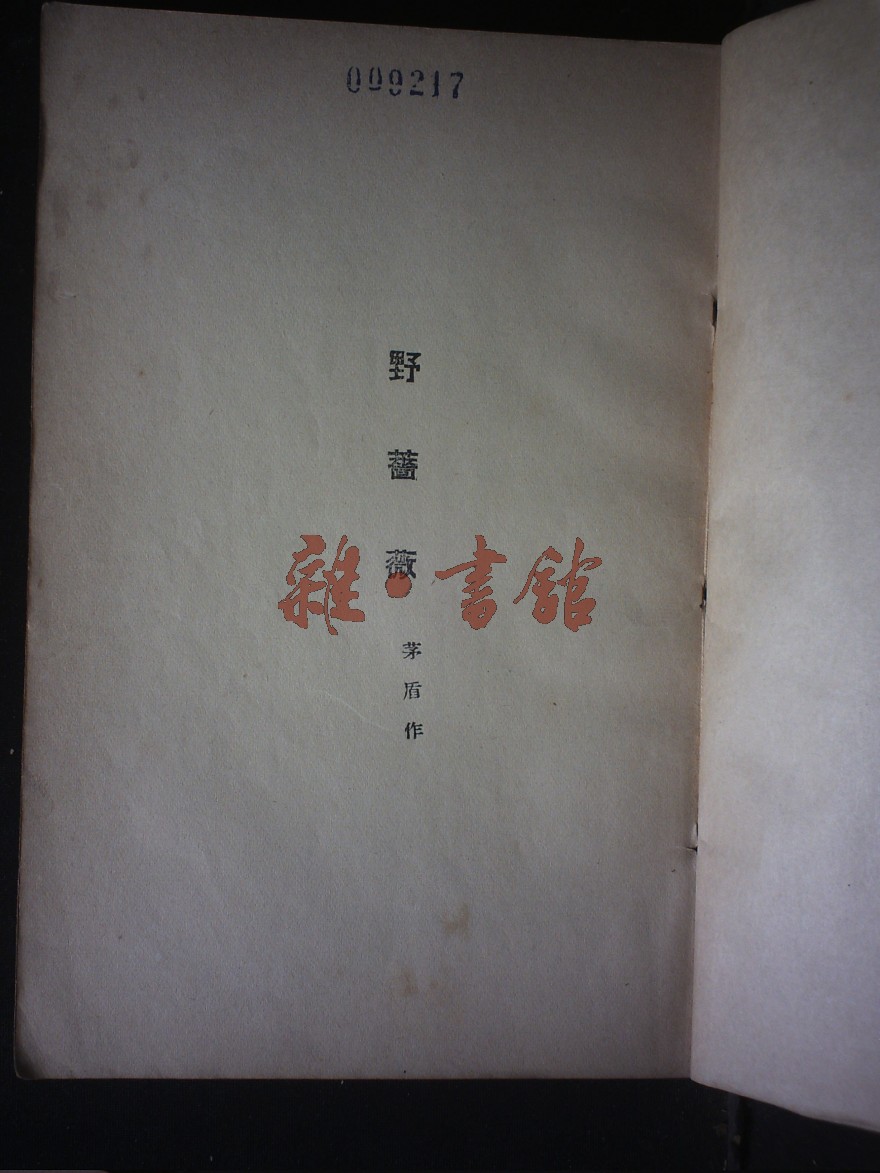 009217
野薔薇
雜·書館
茅盾作